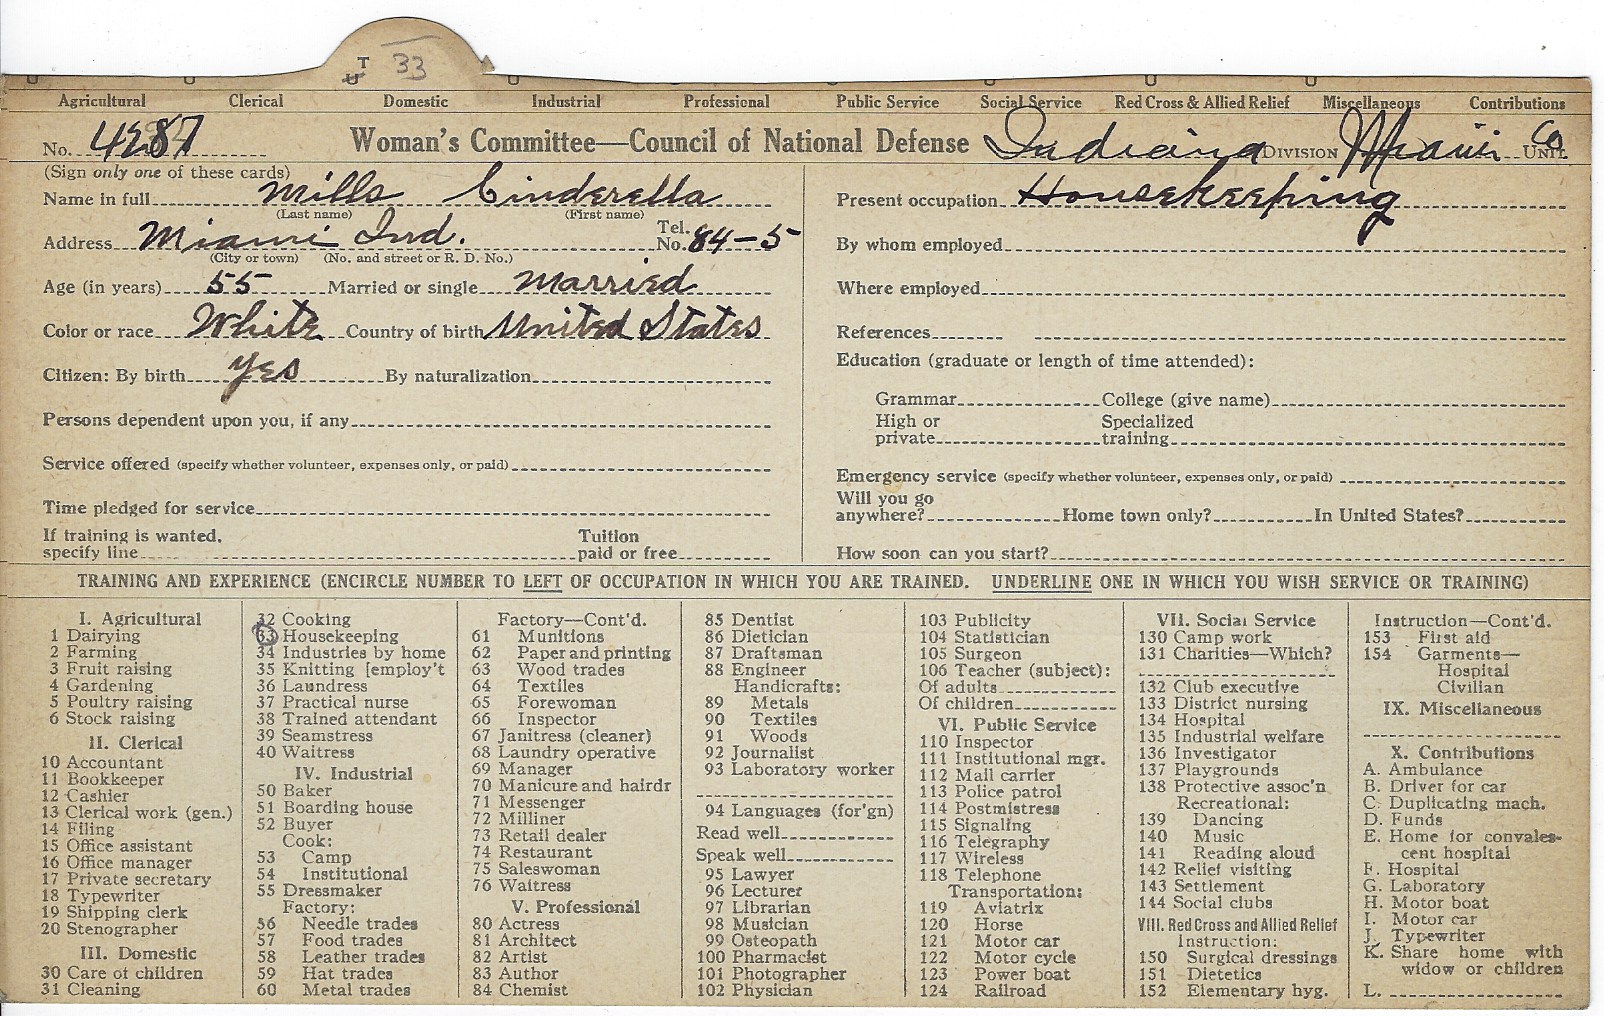 T 33
U
Agricultural Clerical Domestic Industrial Professional Public Service Social Service Red Cross & Allied Relief Miscellaneous Contributions
No. 4287 Woman's Committee—Council of National Defense Indiana DIVISION Miami Co UNIT.
(Sign only one of these cards)
Name in full Mills Cinderella
(Last name) (First name)
Address Miami Ind. Tel. No. 84-5
(City or town) (No. and street or R. D. No.)
Age (in years) 55 Married or single Married
Color or race White Country of birth United States
Citizen: By birth Yes By naturalization
Persons dependent upon you, if any
Service offered (specify whether volunteer, expenses only, or paid)
Time pledged for service
If training is wanted, specify line Tuition paid or free
Present occupation Housekeeping
By whom employed
Where employed
References
Education (graduate or length of time attended):
Grammar College (give name)
High or private Specialized training
Emergency service (specify whether volunteer, expenses only, or paid)
Will you go anywhere? Home town only? In United States?
How soon can you start?
TRAINING AND EXPERIENCE (ENCIRCLE NUMBER TO LEFT OF OCCUPATION IN WHICH YOU ARE TRAINED. UNDERLINE ONE IN WHICH YOU WISH SERVICE OR TRAINING)
I. Agricultural
1 Dairying
2 Farming
3 Fruit raising
4 Gardening
5 Poultry raising
6 Stock raising
II. Clerical
10 Accountant
11 Bookkeeper
12 Cashier
13 Clerical work (gen.)
14 Filing
15 Office assistant
16 Office manager
17 Private secretary
18 Typewriter
19 Shipping clerk
20 Stenographer
III. Domestic
30 Care of children
31 Cleaning
32 Cooking
33 Housekeeping
34 Industries by home
35 Knitting [employ't
36 Laundress
37 Practical nurse
38 Trained attendant
39 Seamstress
40 Waitress
IV. Industrial
50 Baker
51 Boarding house
52 Buyer
Cook:
53 Camp
54 Institutional
55 Dressmaker
Factory:
56 Needle trades
57 Food trades
58 Leather trades
59 Hat trades
60 Metal trades
Factory—Cont'd.
61 Munitions
62 Paper and printing
63 Wood trades
64 Textiles
65 Forewoman
66 Inspector
67 Janitress (cleaner)
68 Laundry operative
69 Manager
70 Manicure and hairdr
71 Messenger
72 Milliner
73 Retail dealer
74 Restaurant
75 Saleswoman
76 Waitress
V. Professional
80 Actress
81 Architect
82 Artist
83 Author
84 Chemist
85 Dentist
86 Dietician
87 Draftsman
88 Engineer
Handicrafts:
89 Metals
90 Textiles
91 Woods
92 Journalist
93 Laboratory worker
94 Languages (for'gn)
Read well
Speak well
95 Lawyer
96 Lecturer
97 Librarian
98 Musician
99 Osteopath
100 Pharmacist
101 Photographer
102 Physician
103 Publicity
104 Statistician
105 Surgeon
106 Teacher (subject):
Of adults
Of children
VI. Public Service
110 Inspector
111 Institutional mgr.
112 Mail carrier
113 Police patrol
114 Postmistress
115 Signaling
116 Telegraphy
117 Wireless
118 Telephone
Transportation:
119 Aviatrix
120 Horse
121 Motor car
122 Motor cycle
123 Power boat
124 Railroad
VII. Social Service
130 Camp work
131 Charities—Which?
132 Club executive
133 District nursing
134 Hospital
135 Industrial welfare
136 Investigator
137 Playgrounds
138 Protective assoc'n
Recreational:
139 Dancing
140 Music
141 Reading aloud
142 Relief visiting
143 Settlement
144 Social clubs
VIII. Red Cross and Allied Relief
Instruction:
150 Surgical dressings
151 Dietetics
152 Elementary hyg.
Instruction—Cont'd.
153 First aid
154 Garments—
Hospital
Civilian
IX. Miscellaneous
X. Contributions
A. Ambulance
B. Driver for car
C. Duplicating mach.
D. Funds
E. Home for convales-
cent hospital
F. Hospital
G. Laboratory
H. Motor boat
I. Motor car
J. Typewriter
K. Share home with
widow or children
L.